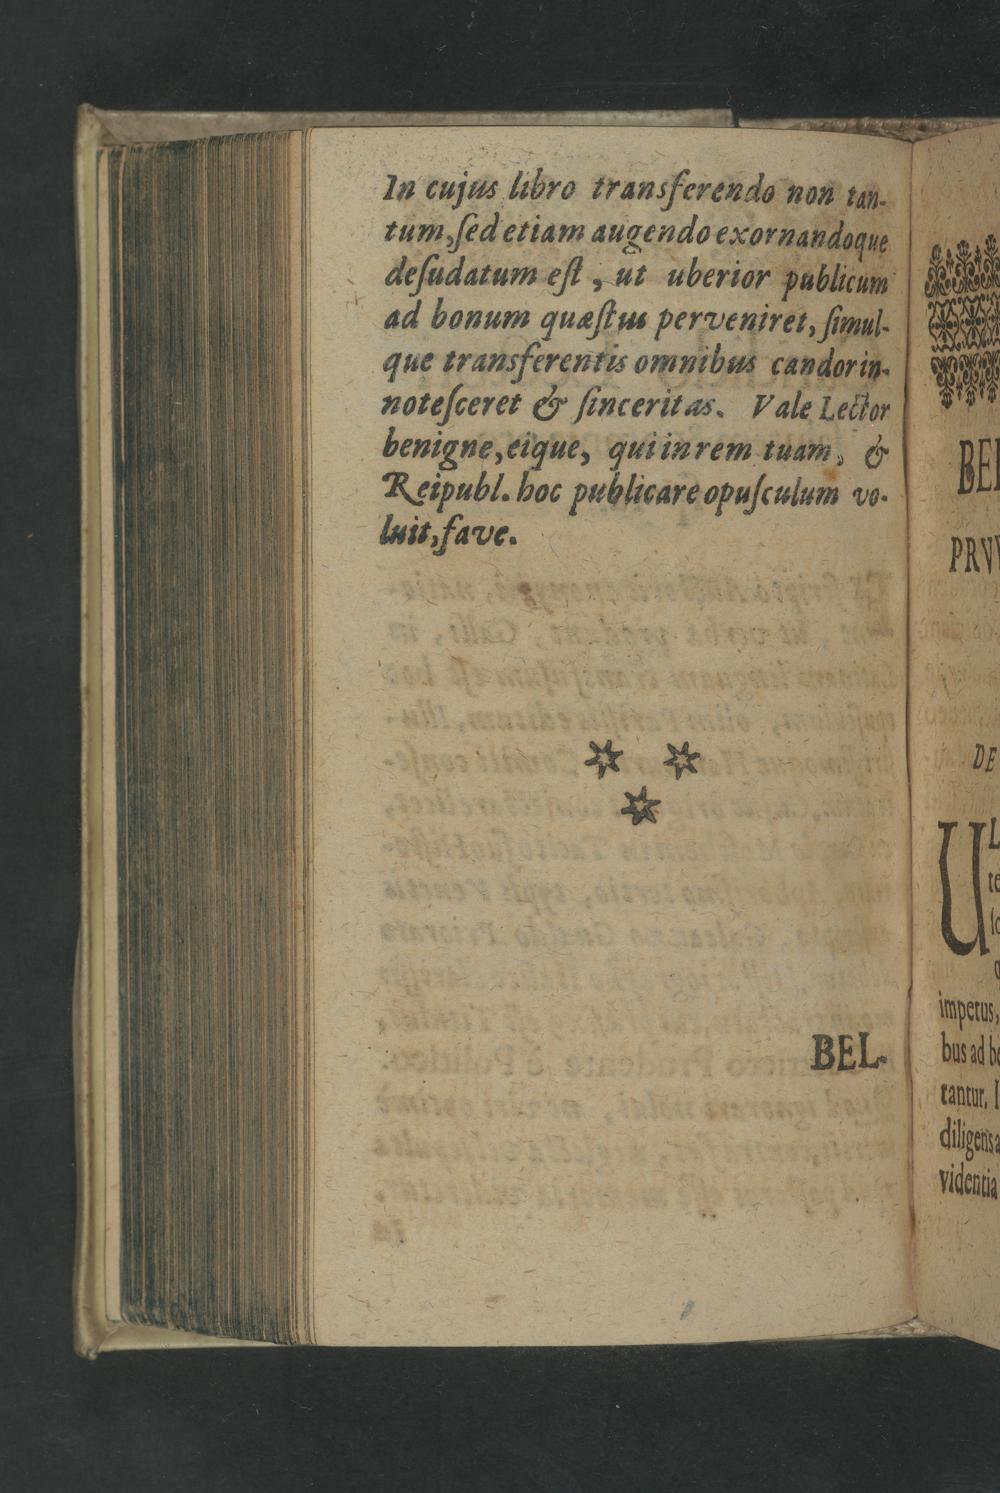 In cujus libro transferendo non tan-
tum, ſed etiam augendo exornandoque
deſudatum eſt, ut uberior publicum
ad bonum quæſtus perveniret, ſimul-
que transferentis omnibus candor in-
noteſceret & ſinceritas. Vale Lector
benigne, eique, qui in rem tuam, &
Reipubl. hoc publicare opuſculum vo-
luit, fave.
* *
*
BEL-
BEL
PRVV
DE
U
impetus,
bus ad be
tantur. I
diligens a
videntia